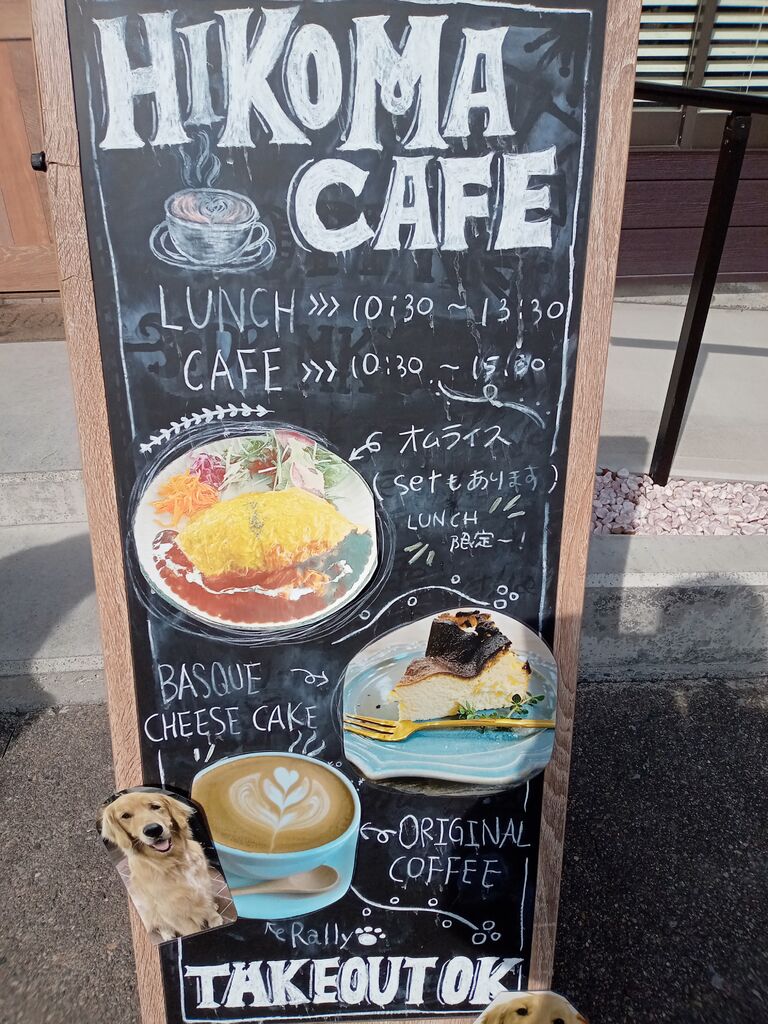 HIKOMA
CAFE
LUNCH >>> 10:30 ~ 13:30
CAFE >>> 10:30 ~ 15:30
オムライス
(setもあります)
LUNCH
限定~!
BASQUE
CHEESE CAKE
ORIGINAL
COFFEE
Rally
TAKEOUT OK